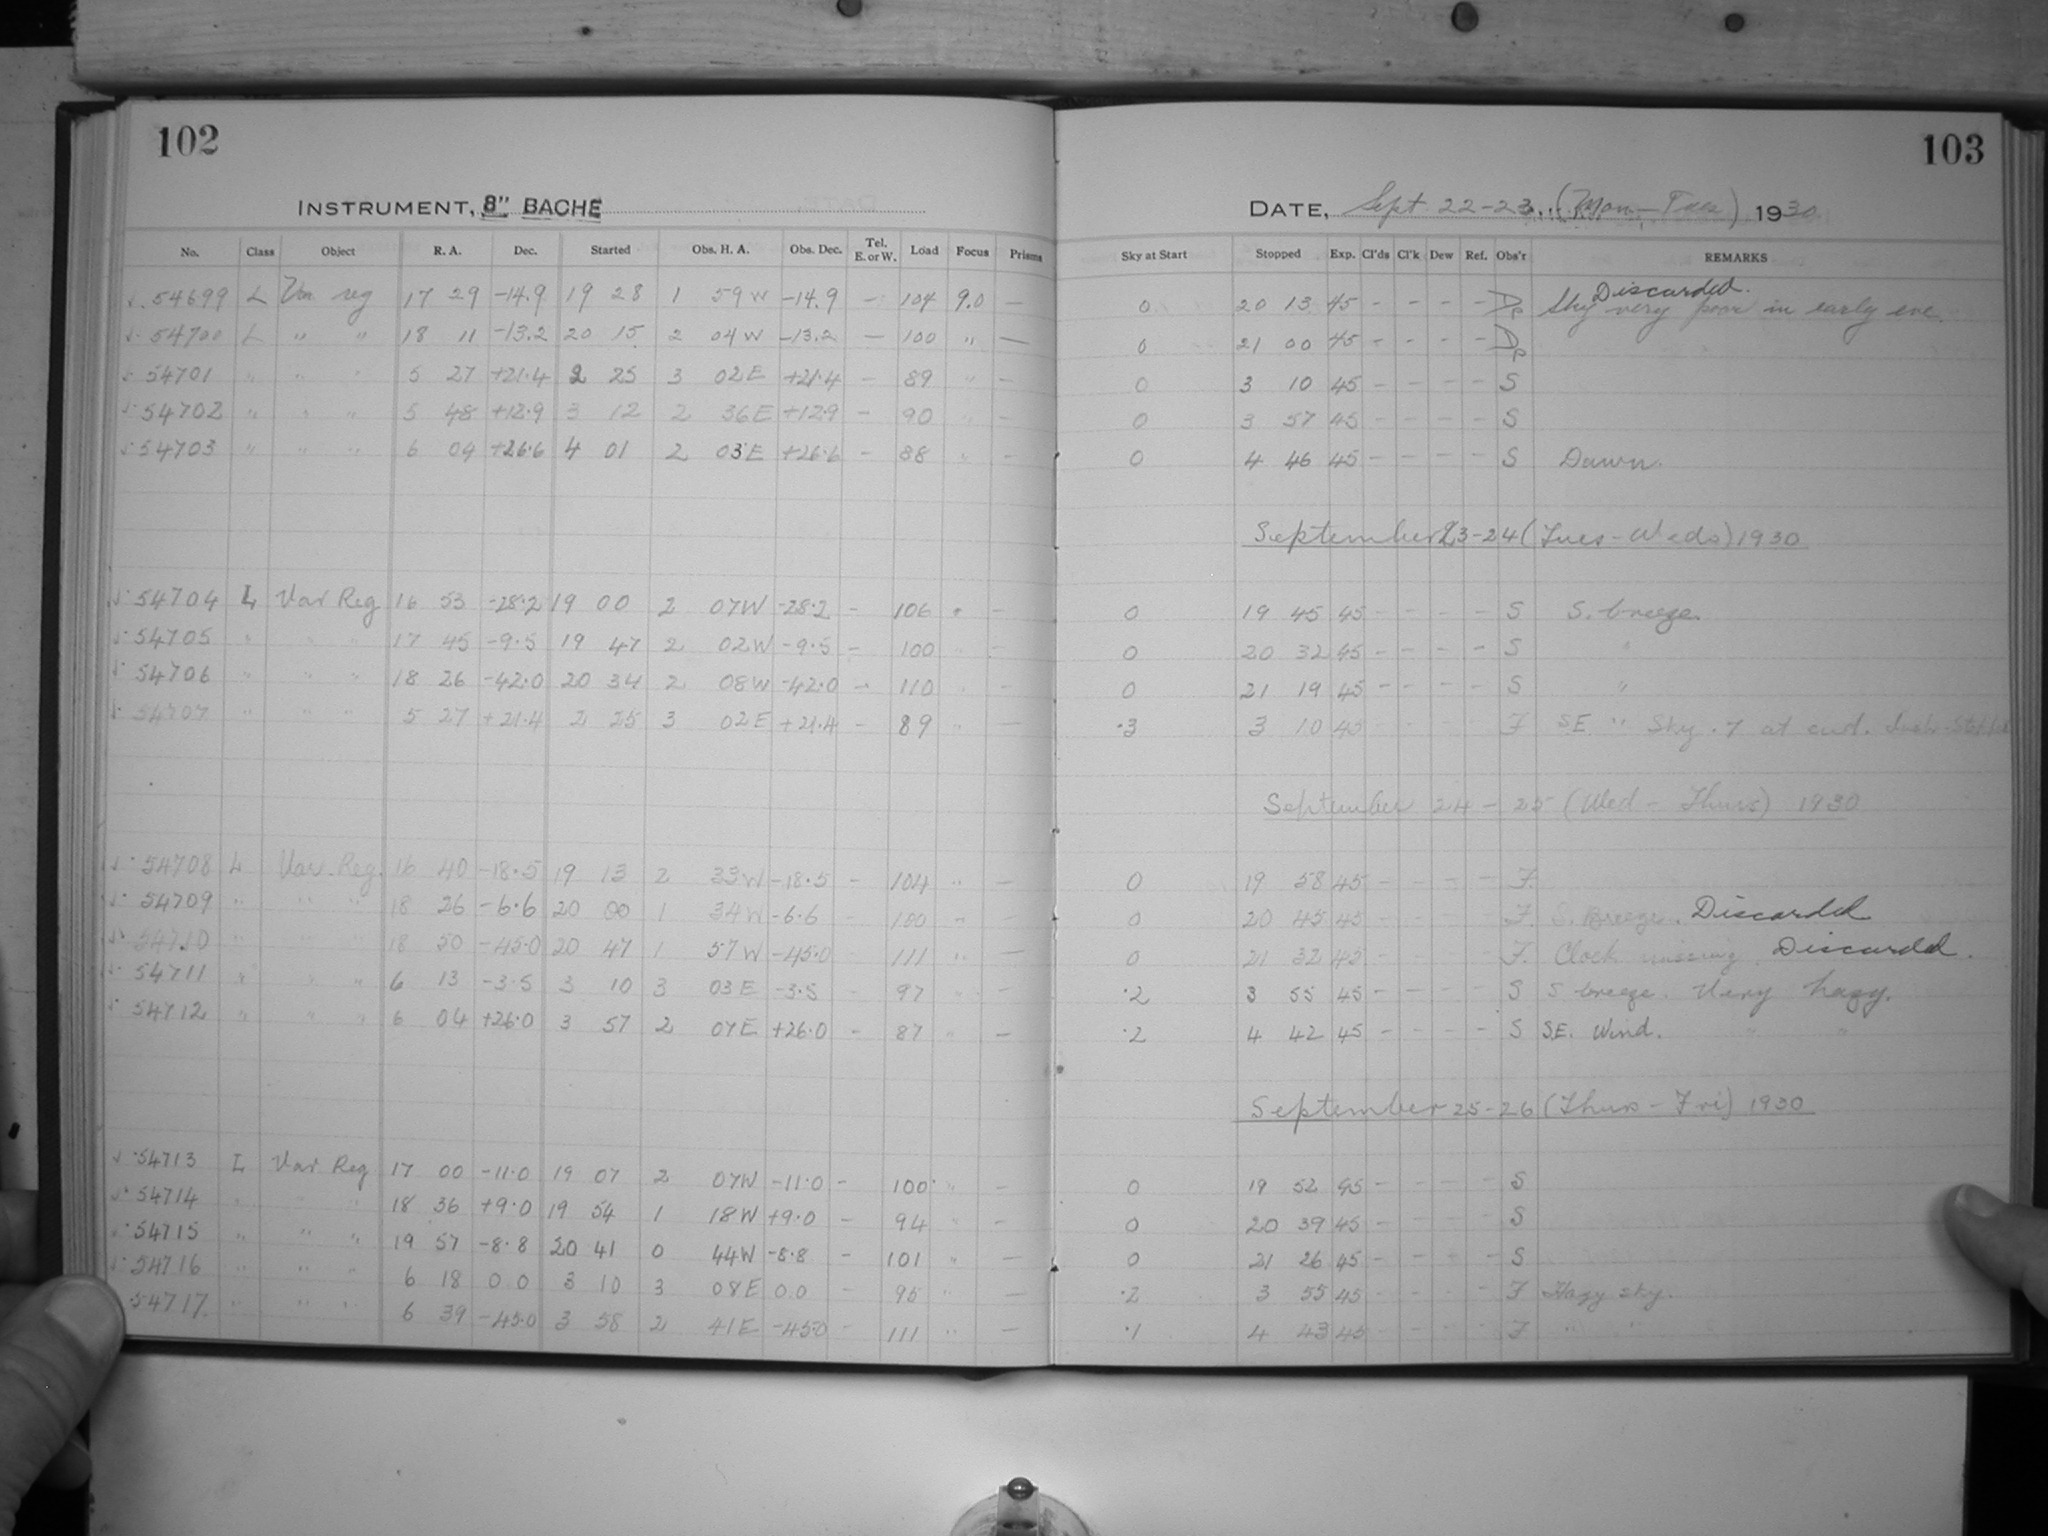 102
INSTRUMENT, 8" BACHE
No. Class Object R. A. Dec. Started Obs. H. A. Obs. Dec. Tel. E. or W. Load Focus Prisms
54699 L Var reg 17 29 -14.9 19 28 1 59 W -14.9 - 104 9.0 -
54700 L " " 18 11 -13.2 20 15 2 04 W -13.2 - 100 " -
54701 " " " 5 27 +21.4 2 25 3 02 E +21.4 - 89 " -
54702 " " " 5 48 +12.9 3 12 2 36 E +12.9 - 90 " -
54703 " " " 6 04 +26.6 4 01 2 03 E +26.6 - 88 " -
54704 L Var Reg 16 53 -28.2 19 00 2 07 W -28.2 - 106 " -
54705 " " " 17 45 -9.5 19 47 2 02 W -9.5 - 100 " -
54706 " " " 18 26 -42.0 20 34 2 08 W -42.0 - 110 " -
54707 " " " 5 27 +21.4 2 25 3 02 E +21.4 - 89 " -
54708 L Var. Reg. 16 40 -18.5 19 13 2 33 W -18.5 - 104 " -
54709 " " " 18 26 -6.6 20 00 1 34 W -6.6 - 100 " -
54710 " " " 18 50 -45.0 20 47 1 57 W -45.0 - 111 " -
54711 " " " 6 13 -3.5 3 10 3 03 E -3.5 - 97 " -
54712 " " " 6 04 +26.0 3 57 2 07 E +26.0 - 87 " -
54713 L Var Reg 17 00 -11.0 19 07 2 07 W -11.0 - 100 " -
54714 " " " 18 36 +9.0 19 54 1 18 W +9.0 - 94 " -
54715 " " " 19 57 -8.8 20 41 0 44 W -8.8 - 101 " -
54716 " " " 6 18 0.0 3 10 3 08 E 0.0 - 95 " -
54717 " " " 6 39 -45.0 3 58 2 41 E -45.0 - 111 " -
103
DATE, Sept 22-23 (Mon-Tues) 1930
Sky at Start Stopped Exp. Cl'ds Cl'k Dew Ref. Obs'r REMARKS
Discarded.
0 20 13 45 - - - - Dp Sky very poor in early eve.
0 21 00 45 - - - - Dp
0 3 10 45 - - - - S
0 3 57 45 - - - - S
0 4 46 45 - - - - S Dawn.
September 23-24 (Tues-Weds) 1930
0 19 45 45 - - - - S S. breeze.
0 20 32 45 - - - - S "
0 21 19 45 - - - - S "
.3 3 10 45 - - - - F SE " Sky .7 at end.
September 24-25 (Wed-Thurs) 1930
0 19 58 45 - - - - F.
0 20 45 45 - - - - F. S. Breeze. Discarded
0 21 32 45 - - - - F. Clock missing. Discarded.
.2 3 55 45 - - - - S S breeze. Very hazy.
.2 4 42 45 - - - - S S.E. Wind. " "
September 25-26 (Thurs-Fri) 1930
0 19 52 45 - - - - S
0 20 39 45 - - - - S
0 21 26 45 - - - - S
.2 3 55 45 - - - - F Hazy sky.
.1 4 43 45 - - - - F " "